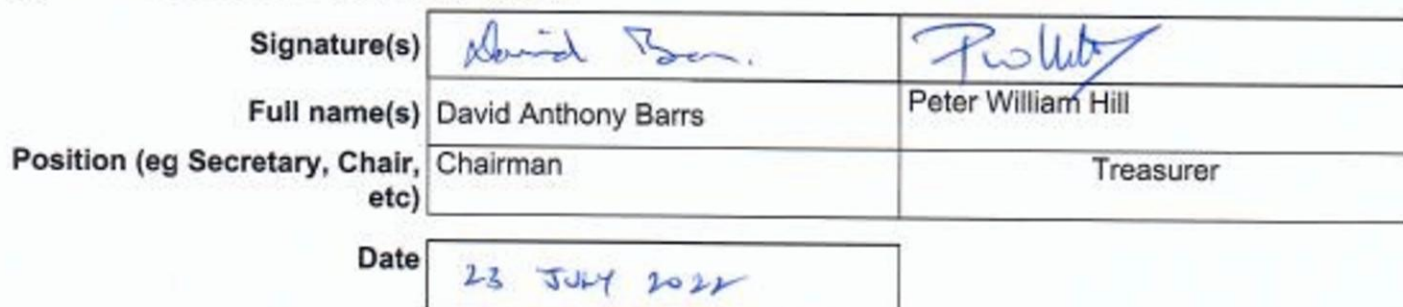 Signature(s) David Barrs. PWHill
Full name(s) David Anthony Barrs Peter William Hill
Position (eg Secretary, Chair, Chairman Treasurer
etc)
Date 23 JULY 2022